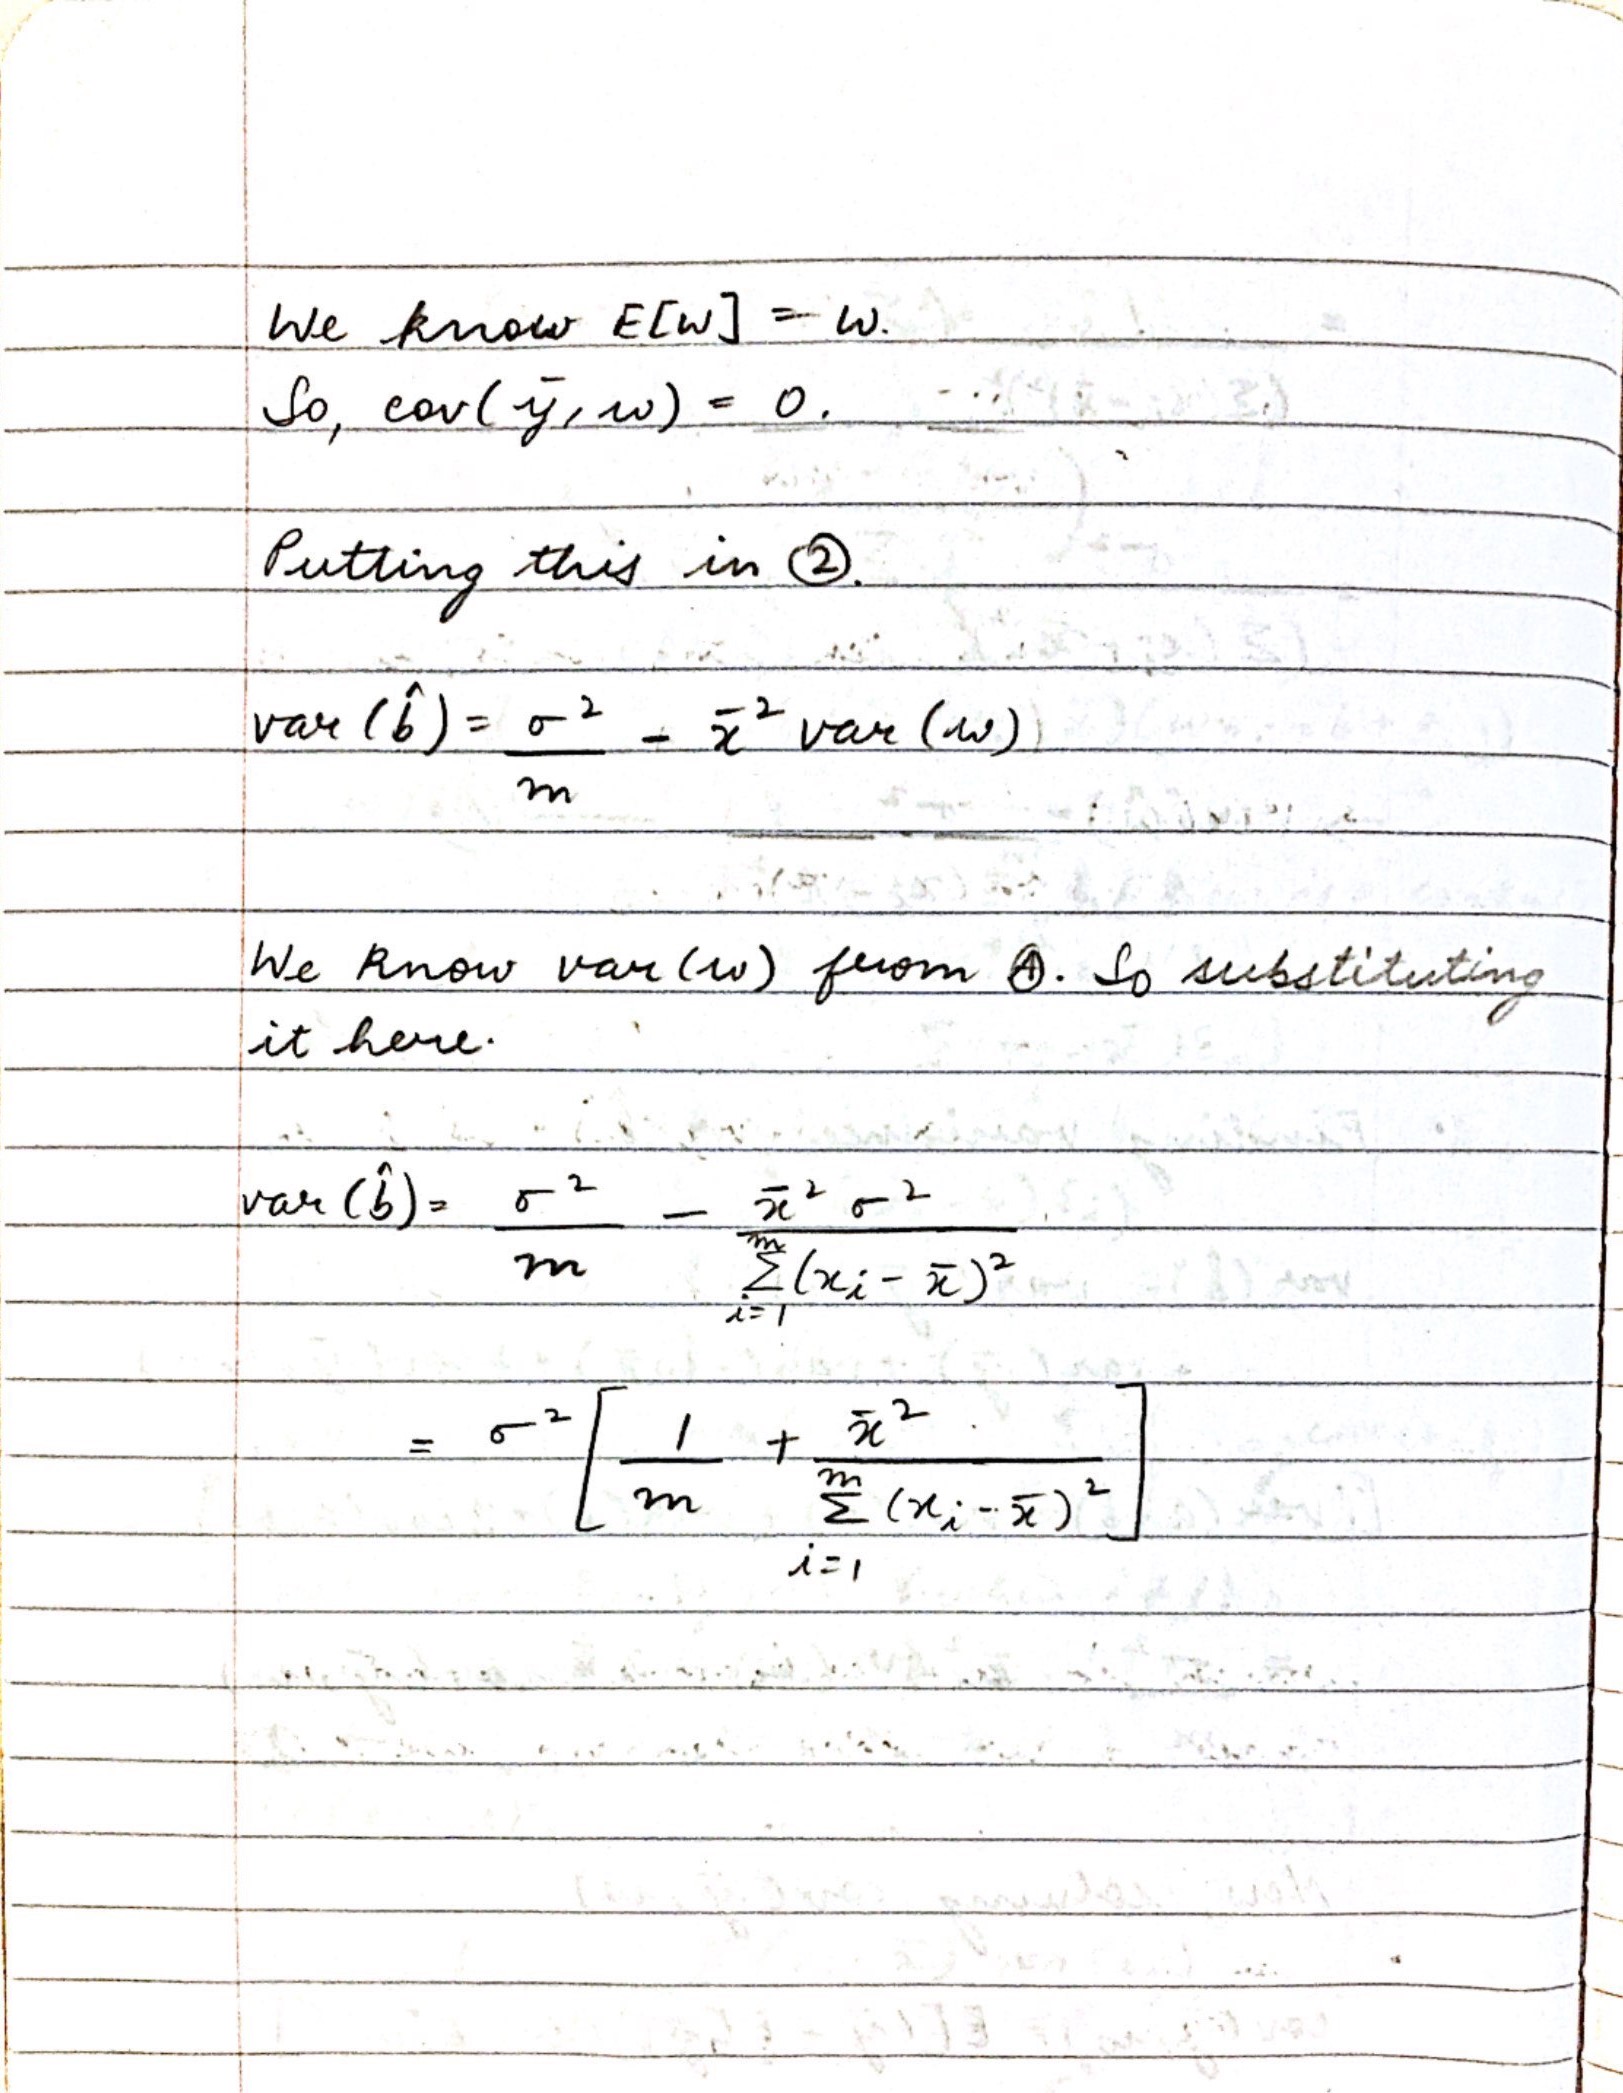 We know E[w] = w.
So, cov(ȳ, w) = 0.
Putting this in ②.
var(b̂) = σ²/m - x̄² var(w)
We know var(w) from Ⓐ. So substituting
it here.
var(b̂) = σ²/m - x̄² σ² / Σᵢ₌₁ᵐ (xᵢ - x̄)²
= σ² [ 1/m + x̄² / Σᵢ₌₁ᵐ (xᵢ - x̄)² ]